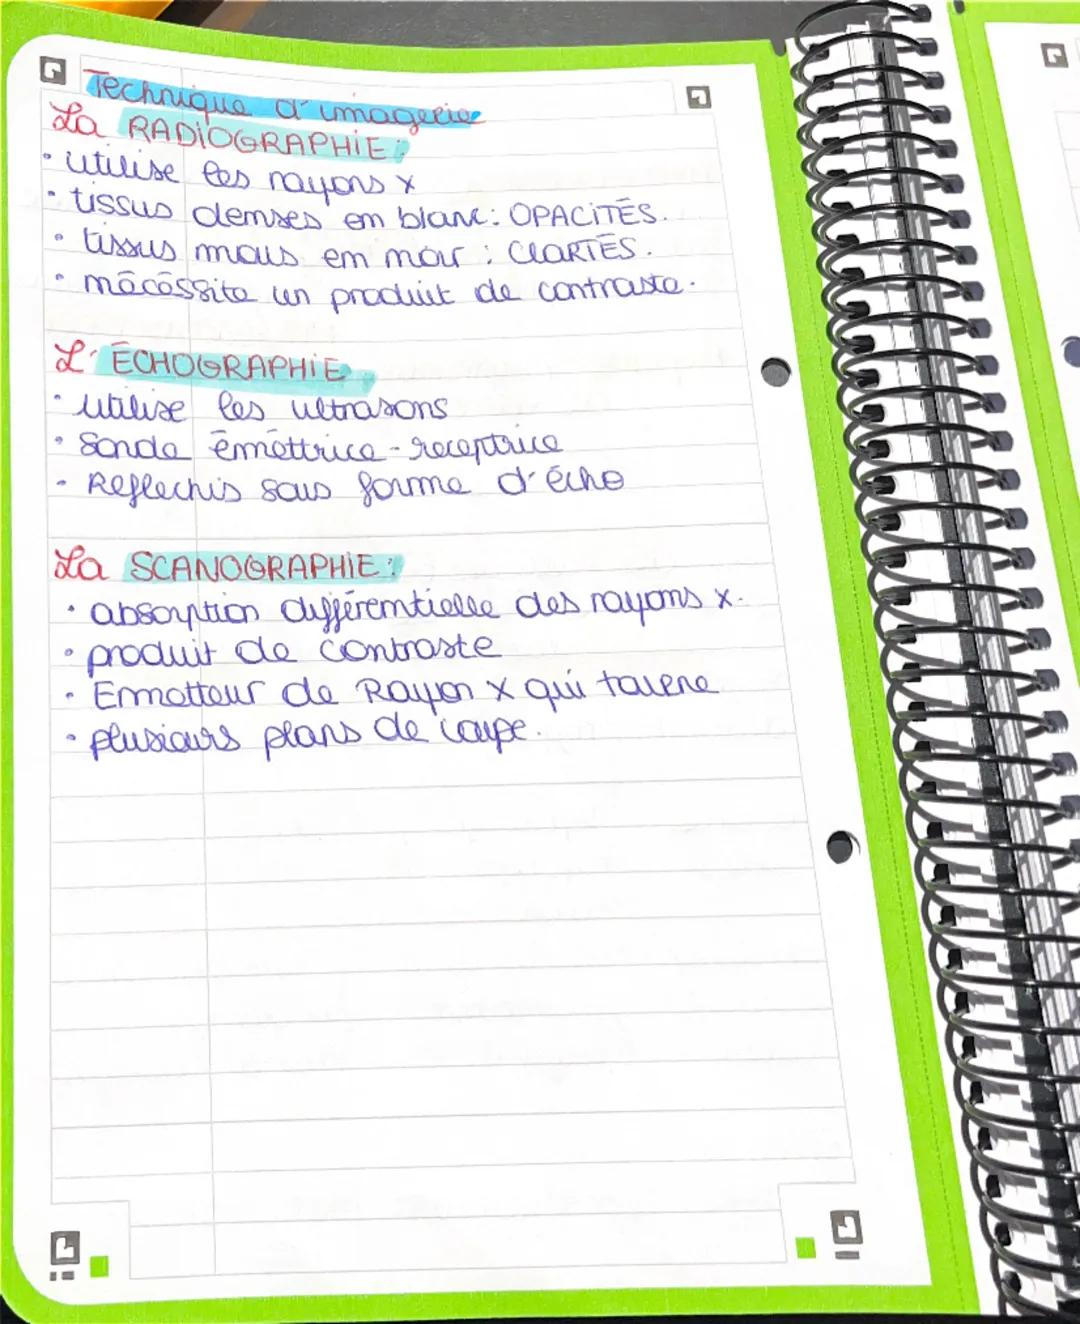 Technique d'imagerie
La RADIOGRAPHIE:
• utilise les rayons x
• tissus denses en blanc: OPACITÉS.
• tissus mous en noir : CLARTÉS.
• nécéssite un produit de contraste.
L'ÉCHOGRAPHIE
• utilise les ultrasons
• Sonde émettrice-receptrice
• Reflechis sous forme d'écho
La SCANOGRAPHIE:
• absorption différentielle des rayons x.
• produit de contraste
• Emmetteur de Rayon X qui tourne
• plusieurs plans de coupe.